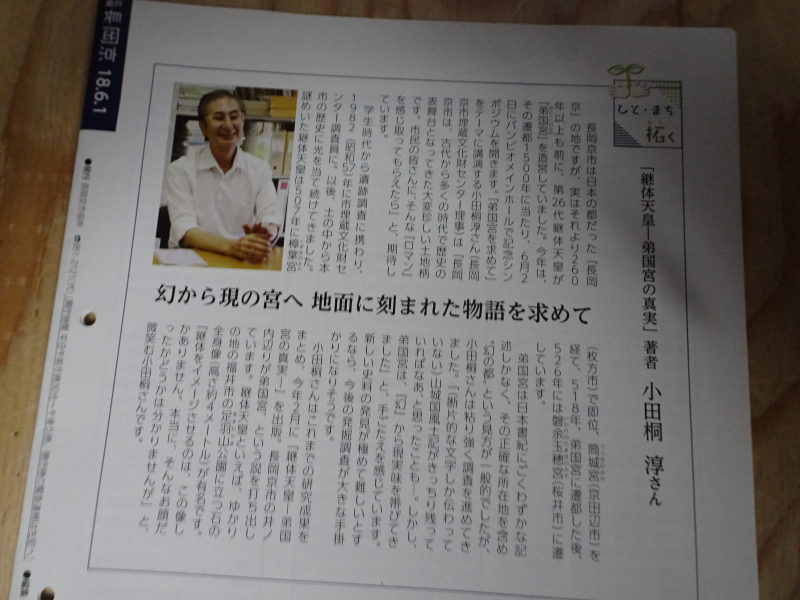 長岡京 18.6.1
ひと・まち
拓く
「継体天皇―弟国宮の真実」著者 小田桐 淳さん
長岡京市は日本の都だった「長岡
京」の地ですが、実はそれより260
年以上も前に、第26代継体天皇が
「弟国宮」を造営していました。今年は、
その遷都1500年に当たり、6月2
日にバンビオメインホールで記念シン
ポジウムを開きます。「弟国宮を求めて」
をテーマに講演する小田桐淳さん(長岡
京市埋蔵文化財センター理事)は「長岡
京市は、古代から多くの時代で歴史の
表舞台となってきた大変珍しい土地柄
です。市民の皆さんに、そんな『ロマン』
を感じ取ってもらえたら」と、期待し
ています。
学生時代から遺跡調査に携わり、
1982(昭和57)年に市埋蔵文化財セ
ンター調査員に。以後、土の中から本
市の歴史に光を当て続けてきました。
謎めいた継体天皇は507年に樟葉宮
幻から現の宮へ 地面に刻まれた物語を求めて
(枚方市)で即位、筒城宮(京田辺市)を
経て、518年、弟国宮に遷都した後、
526年には磐余玉穂宮(桜井市)に遷
しています。
弟国宮は日本書紀にごくわずかな記
述しかなく、その正確な所在地を含め
“幻の都”という見方が一般的でしたが、
小田桐さんは粘り強く調査を進めてき
ました。「(断片的な文字しか伝わって
いない)山城国風土記がきっちり残って
いればなあ、と思ったことも…。しかし、
弟国宮は、『幻』から現実味を帯びてき
ました」と、手ごたえを感じています。
新しい史料の発見が極めて難しいとす
るなら、今後の発掘調査が大きな手掛
かりになりそうです。
小田桐さんはこれまでの研究成果を
まとめ、今年2月に『継体天皇―弟国
宮の真実―』を出版。長岡京市の井ノ
内辺りが弟国宮、という説を打ち出し
ています。継体天皇といえば、ゆかり
の地の福井市の足羽山公園に立つ石の
全身像(高さ約4メートル)が有名です。
「継体をイメージさせるのは、この像し
かありません。本当に、そんなお顔だ
ったかどうかは分かりませんが」と、
微笑む小田桐さんです。